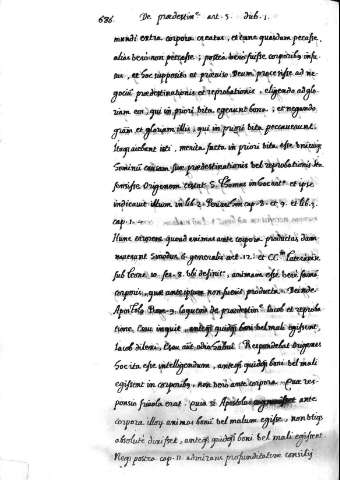 686. De prædestin.e art. 5. dub. 1.
mundi extra corpora creatas, et tunc quasdam pecasse,
alias vero non peccasse; postea vero fuisse corporibus infu
sas, et hoc supposito et præviso Deum processisse ad ne
gociũ prædestinationis et reprobationis, eligendo ad glo
riam eos, qui in priori vita egerant bona; et negando
grãm et gloriam illis, qui in priori vita peccaverunt.
Itaq; aiebant isti, merita facta in priori vita esse
causam suæ prædestinationis vel reprobationis. Ita
sensisse Origenem S. Thomas in et ipse
indicavit illum in lib. 2. cap. 8. et 9. et lib. 3.
cap. 1.
Hunc errorem quoad animas ante corpora productas, dam
naverunt Synodus 6. generalis act. 11. et
sub Leone 10. ses. 8. ubi definit, animam esse vere formã
corporis, quæ ante ipsum non fuerit producta. Deinde
Apostolo Rom. 9. loquens de prædestin.e Iacob et reproba
tione, Esau inquit, anteq; quidq; boni vel mali egissent,
Iacob dilexi, Esau aut odio habui. Respondebat Origenes
hoc ita esse intelligendum, anteq; quidq; boni vel mali
egissent in corporibus, non vero ante corpora. Quæ res
ponsio frivola erat. Quia si Apostolus ante
corpora illoq; animas boni vel malum egisse, non utiq;
absolute dixisset, anteq; quidq; boni vel mali egissent
Neq; postea cap. 11. admirans profunditatem consilij